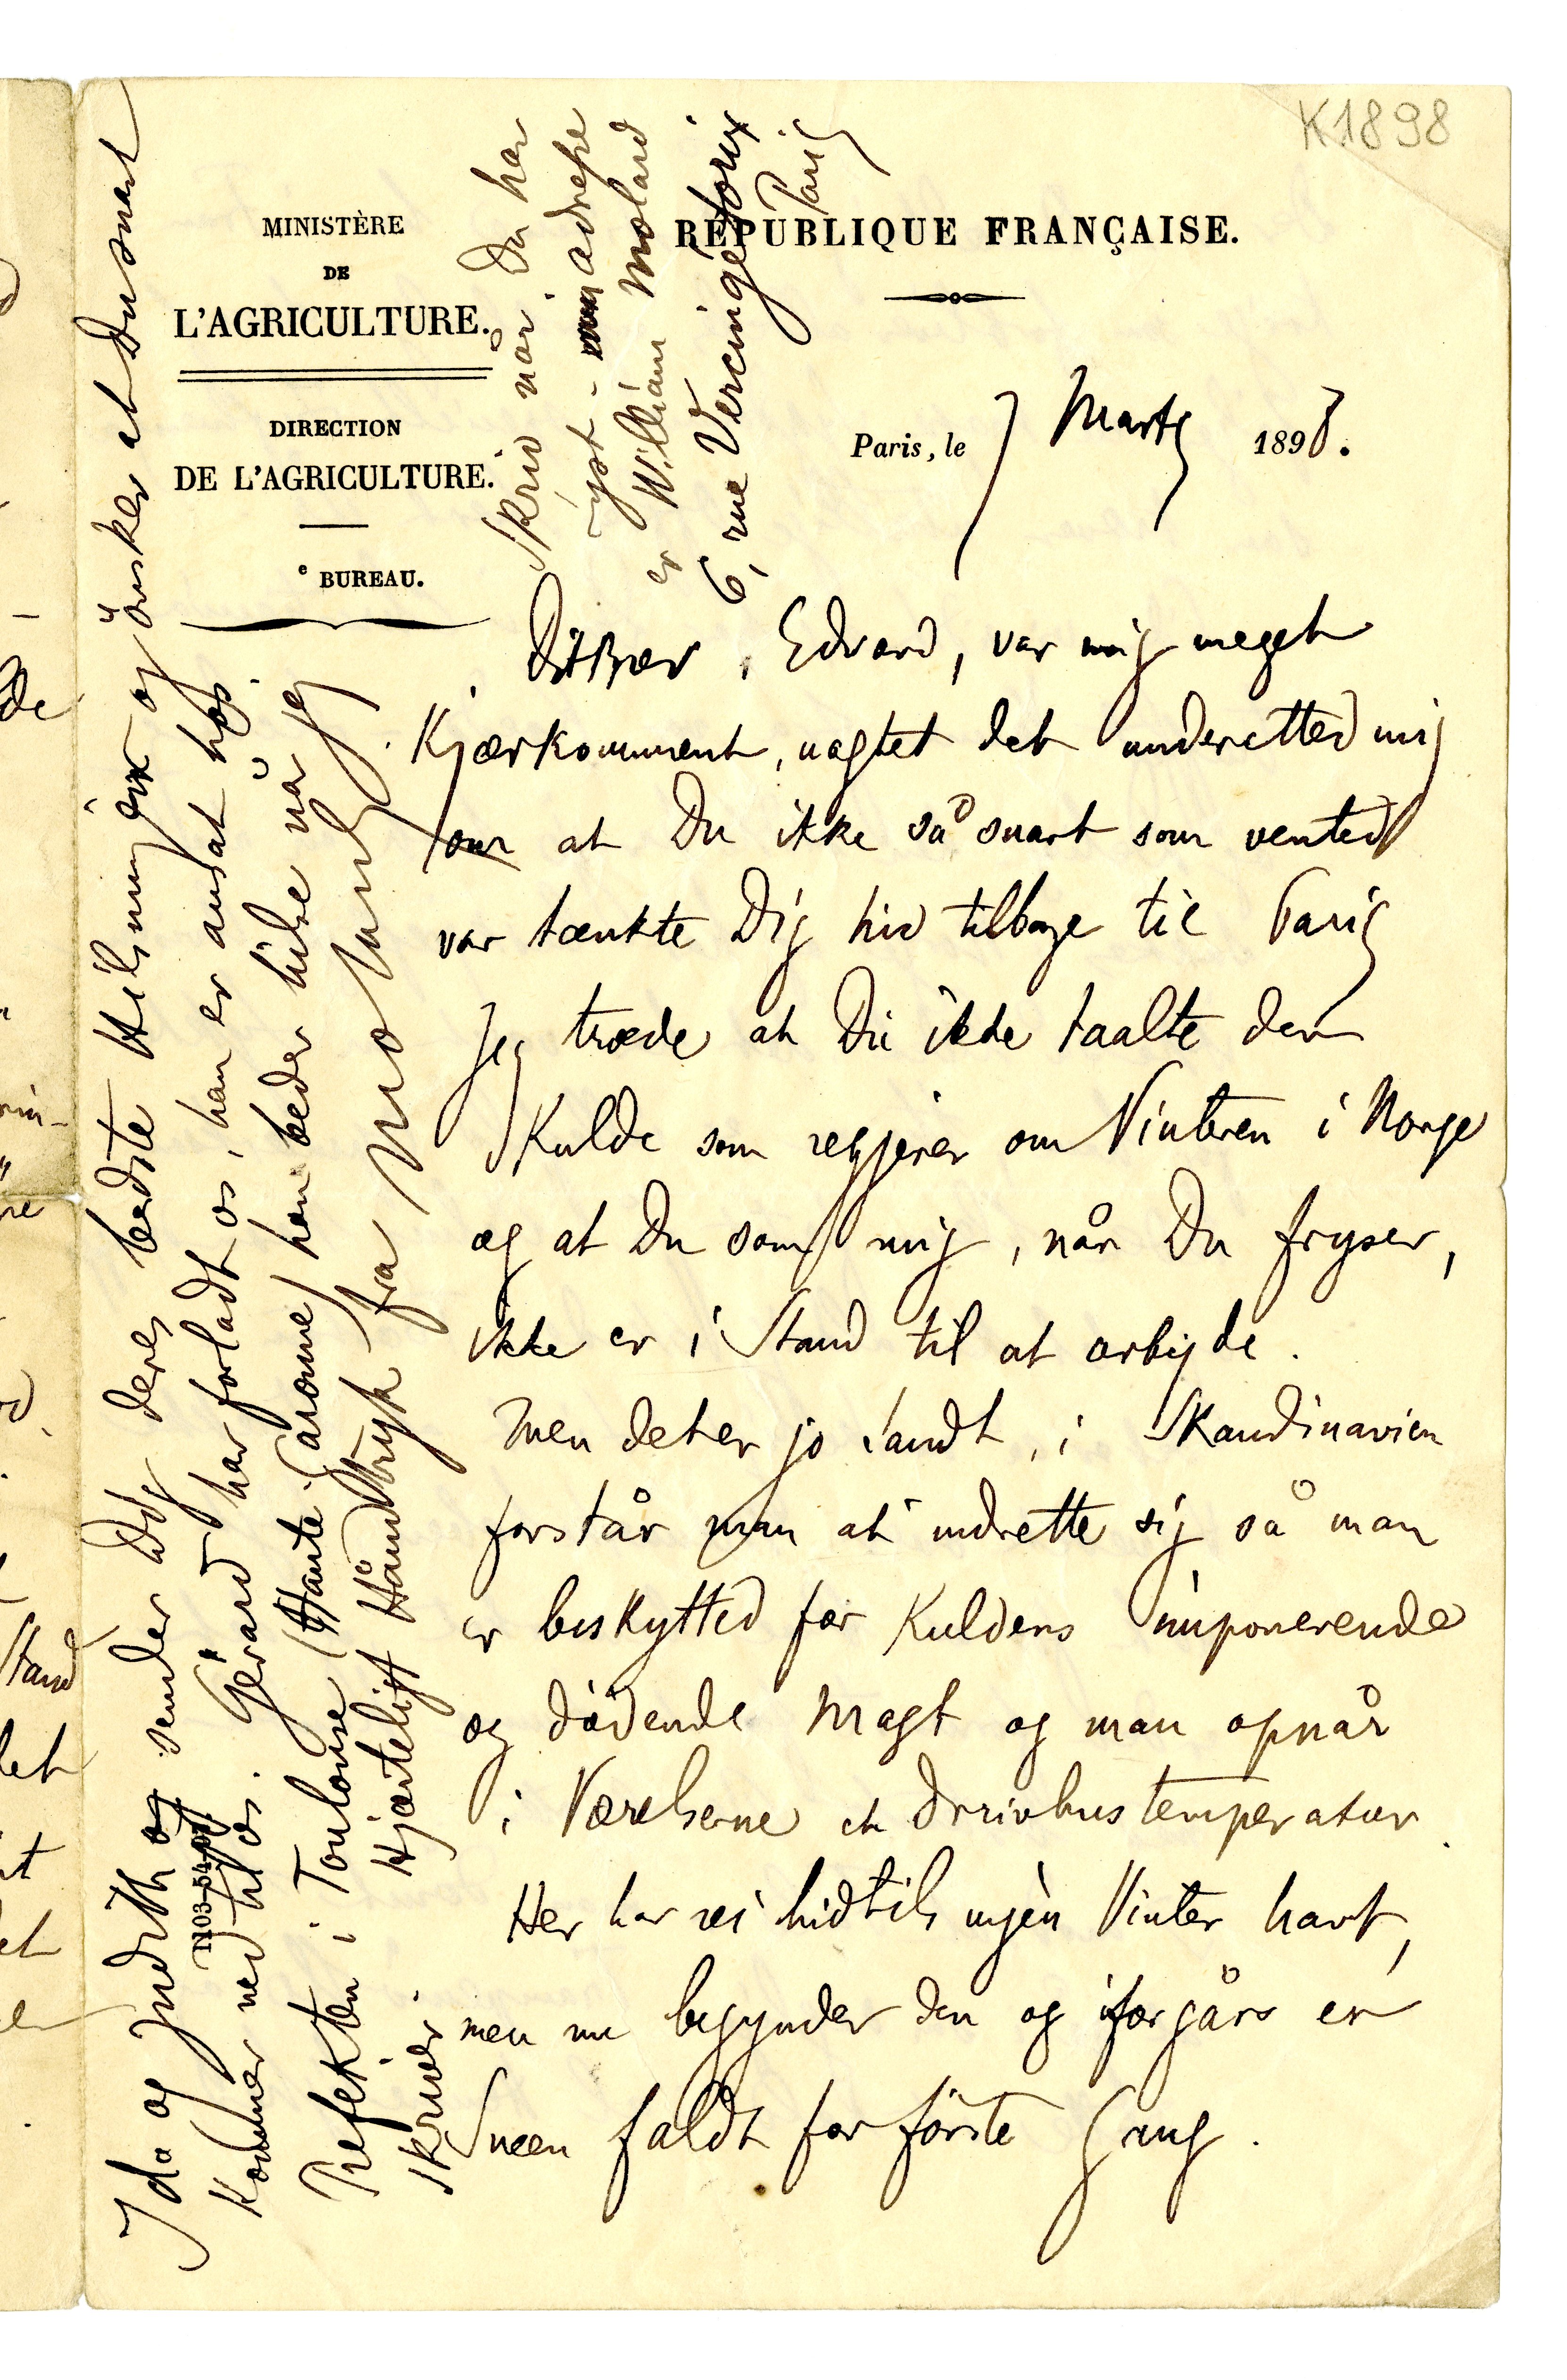 K1898
MINISTÈRE
DE
L'AGRICULTURE.
DIRECTION
DE L'AGRICULTURE.
e BUREAU.
RÉPUBLIQUE FRANÇAISE.
Paris, le 7 Marts 1898.
Dit Brev, Edvard, var mig meget
Kjærkomment, uagtet det underetted mig
om at Du ikke så snart som vented
var tænkte Dig hid tilbage til Paris
Jeg troede at Du ikke taalte den
Kulde som regjerer om Vinteren i Norge
og at Du som mig, når Du fryser,
ikke er i Stand til at arbejde.
Men det er jo sandt, i Skandinavien
forstår man at indrette sig så man
er beskytted for Kuldens imponerende
og dödende Magt og man opnår
i Værelserne en Drivhustemperatur.
Her har vi hidtils ingen Vinter havt,
men nu begynder den og iforgårs er
Sneen faldt for förste Gang.
Ida og Judith og sender Dig deres bedste Hilsninger og önsker at Du snart
Kommer ned til os. Gérard har forladt os, han er ansat hos
Prefekten i Toulouse (Haute Garonne) han beder hilse når jeg
skriver. Hjærteligt Håndtryk fra Molard
Skriv når Du har
lyst - min adresse
er William Molard
6, rue Vercingetorix
Paris
1103-54-97